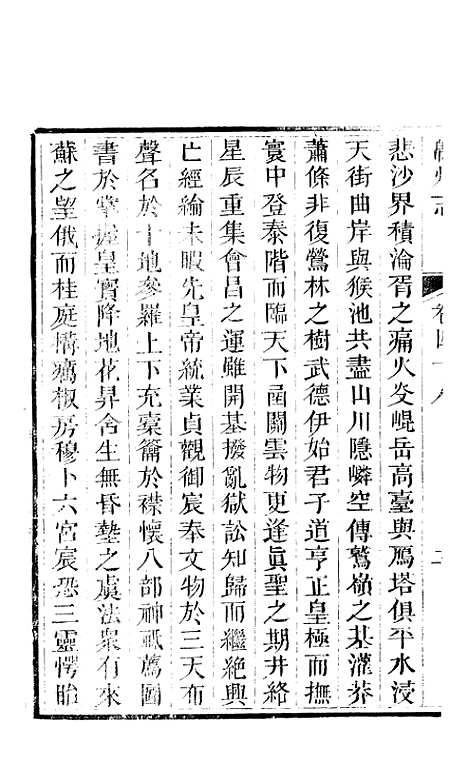 悲沙界積淪胥之痛火炎崐岳高臺與鴈塔俱平水浸
天街曲岸與猴池共盡山川隱嶙空傳鷲嶺之基灌莽
蕭條非復鶯林之樹武德伊始君子道亨正皇極而撫
寰中登泰階而臨天下函關雲物更逢眞聖之期井絡
星辰重集會昌之運雖開基撥亂獄訟知歸而繼絶興
亡經綸未暇先皇帝統業貞觀御宸奉文物於三天布
聲名於十地參羅上下充槖籥於襟懷八部神祇薦圖
書於掌握皇實降地花昇含生無昏墊之虞法衆有來
蘇之望俄而桂庭構癘椒房穆卜六宮宸恐三靈愕眙